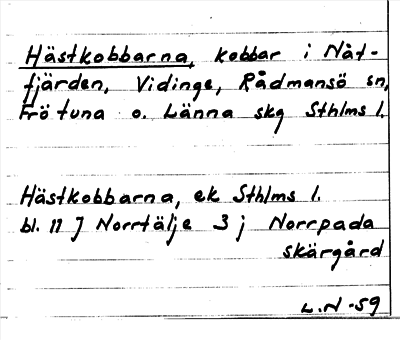 Hästkobbarna, kobbar i Nåt-
fjärden, Vidinge, Rådmansö sn,
Frötuna o. Länna skg Sthlms l.
Hästkobbarna, ek Sthlms l.
bl. 11 J Norrtälje 3 j Norrpada
skärgård
L.N -59